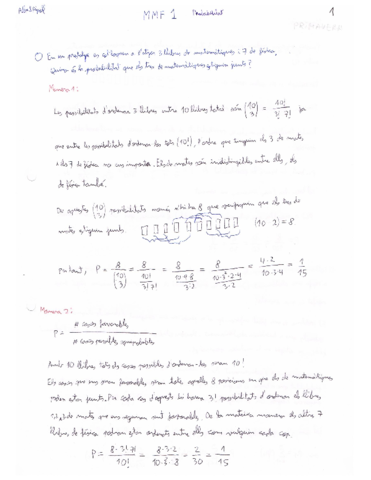 MMF 1
1
En un prestatge es col·loquen a l'atzar 3 llibres de matemàtiques i 7 de física.
Quina és la probabilitat que els tres de matemàtiques estiguin junts?
Manera 1:
Les possibilitats d'ordenar 3 llibres entre 10 llibres totals són (10 3) = 10! / 3! 7!
que entre les possibilitats d'ordenar els tots (10!), l'ordre que tinguem els 3 de mates
i els 7 de física no ens importa. Els de mates són indistingibles entre ells, els
de física també.
D'aquestes possibilitats només n'hi ha 8 que els tres de
mates estiguin junts. (10 - 2) = 8
Per tant, P = 8 / (10 3) = 8 / 10! / 3! 7! = 8 / 10·9·8 / 3·2 = 8 / 10·3·2·4 / 3·2 = 4·2 / 10·3·4 = 1 / 15
Manera 2:
P = # casos favorables / # casos possibles equiprobables
Amb 10 llibres tots els casos possibles d'ordenar-los seran 10!
Els casos que ens seran favorables seran tots aquells 8 en què els de matemàtiques
estan junts. Per cada cas d'aquests hi haurà 3! possibilitats d'ordenar els llibres
de mates que ens seguiran sent favorables. De la mateixa manera els altres 7
llibres de física poden estar ordenats entre ells com vulguin cada cop.
P = 8·3!·7! / 10! = 8·3·2 / 10·9·8 = 2 / 30 = 1 / 15